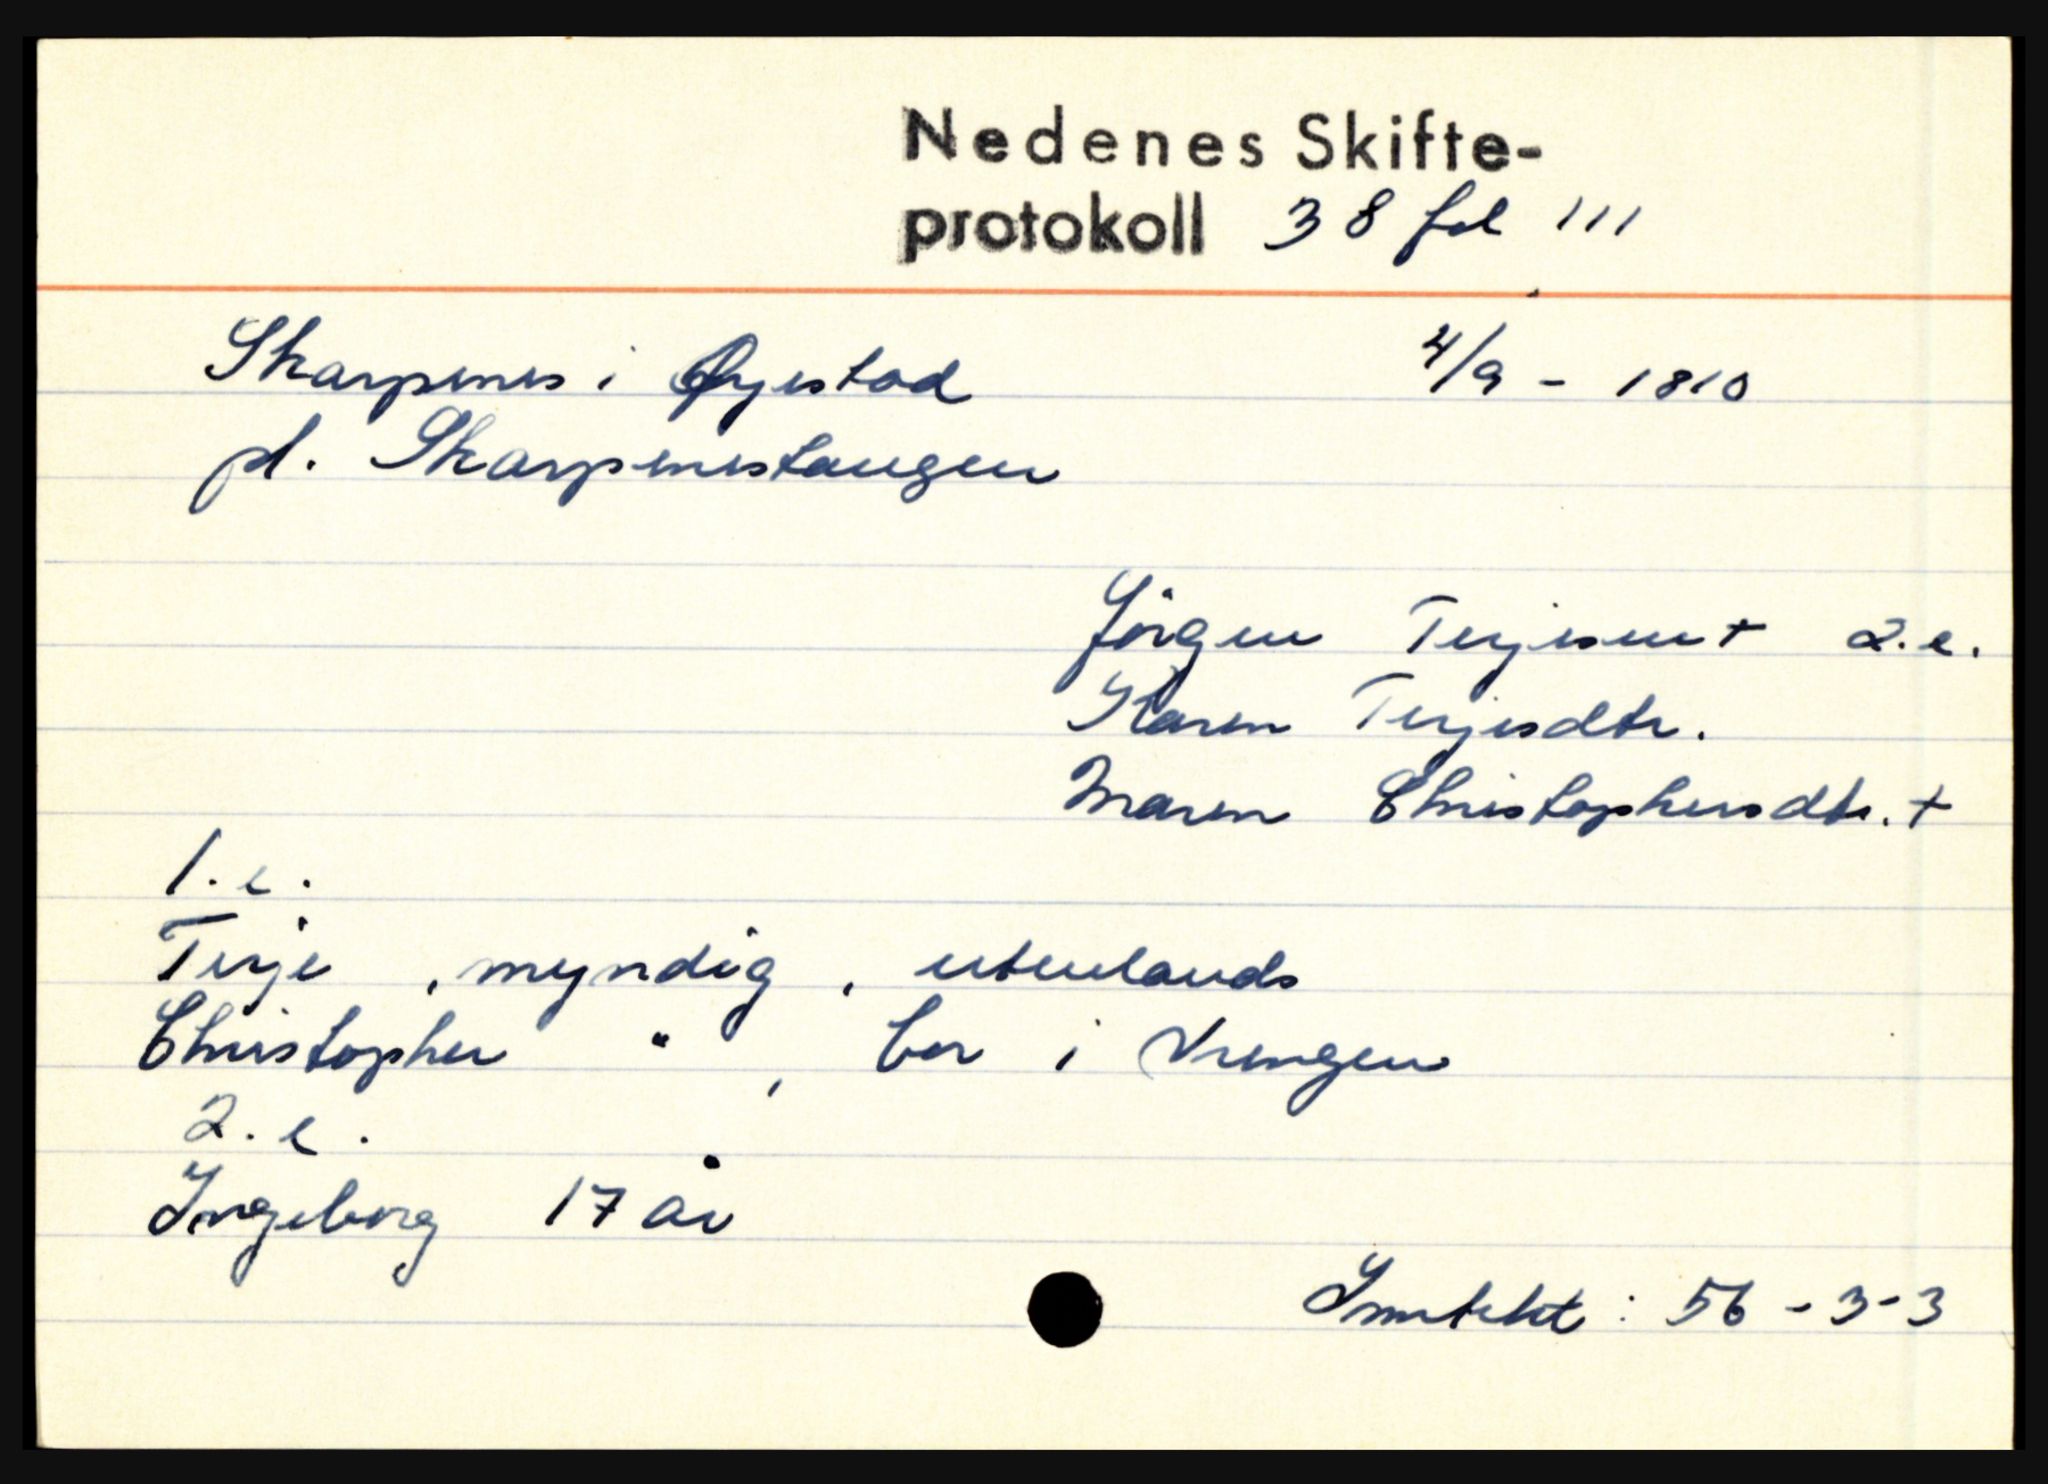 Nedenes Skifte-
protokoll 38 fol 111
Skarpenes i Øyestad 4/9 - 1810
pl. Skarpenestangen
Jörgen Terjesen + 2.e.
Karen Terjesdtr.
Maren Christophersdtr. +
1.e.
Terje , myndig , utenlands
Christopher " , bor i Vrengen
2.e.
Ingeborg 17 år
Inntekt : 56 - 3 - 3